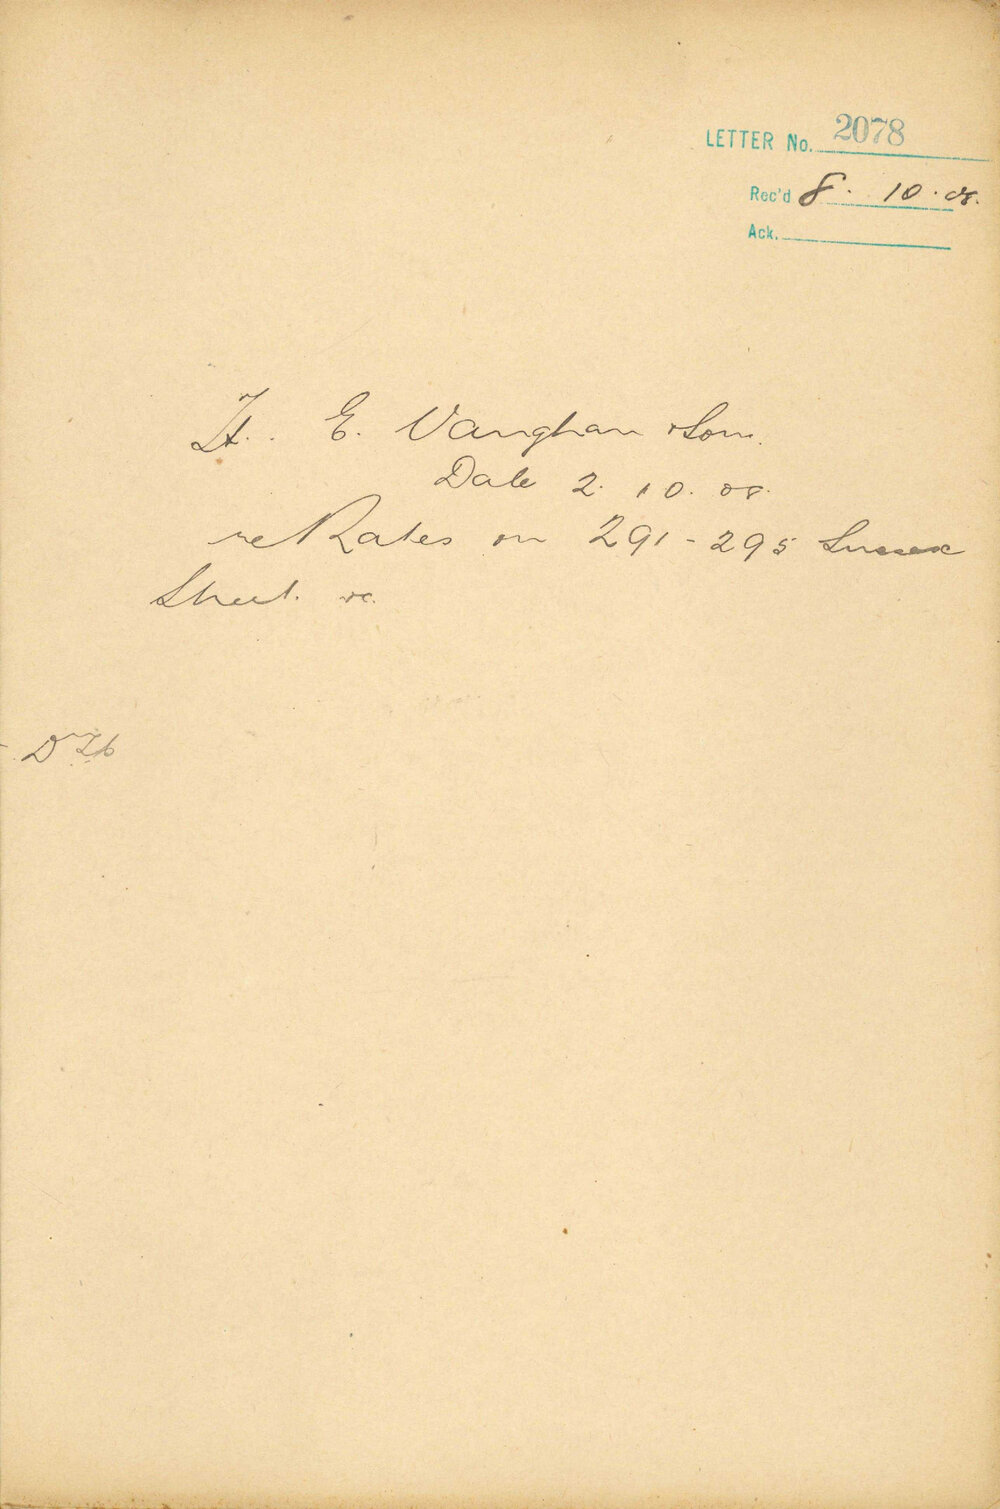 LETTER No. 2078
Rec'd 8. 10. 08.
Ack.
H. E. Vaughan & Son.
Date 2. 10. 08.
re Rates on 291-295 Sussex
Street. &c.